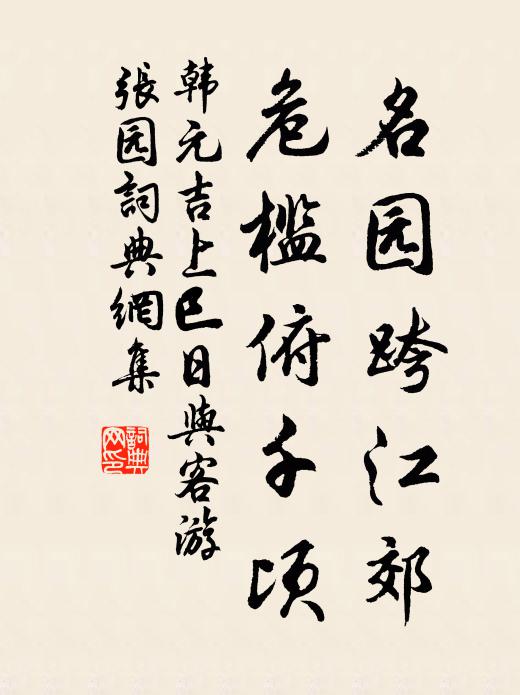 名园跨江郊
危槛俯千顷
韩元吉上巳日與客游
張园詞典網集
詞典
网印